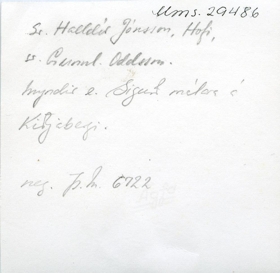 Mms. 29486
Sr. Halldór Jónsson, Hofi,
sr. Gunnl. Oddsson.
Myndir e. Sigurð málara á
neg. Þ.M. 6722